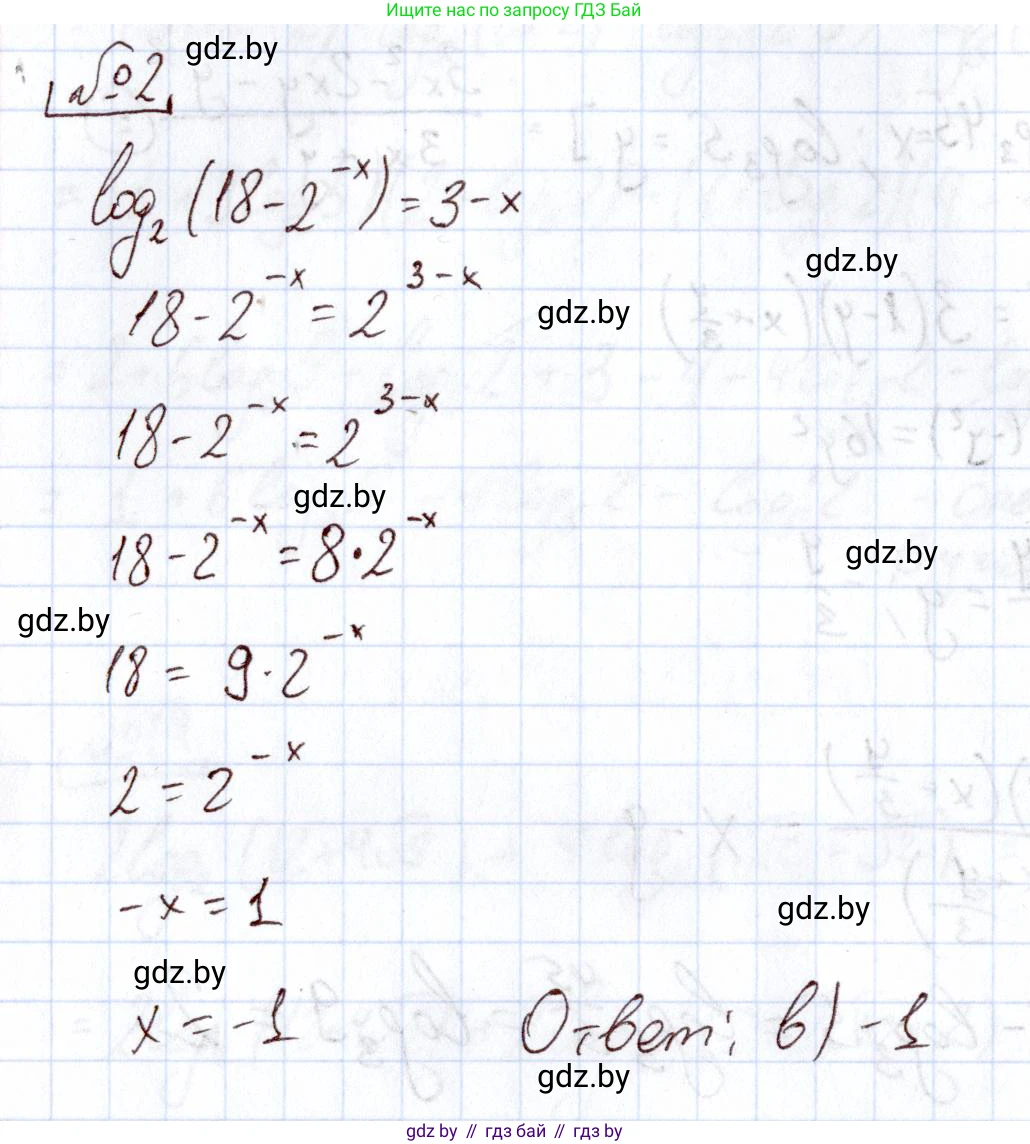 Ищите нас по запросу ГДЗ Бай
gdz.by
№2
log₂(18-2^{-x})=3-x
gdz.by
18-2^{-x}=2^{3-x}
gdz.by
18-2^{-x}=2^{3-x}
gdz.by
18-2^{-x}=8·2^{-x}
gdz.by
gdz.by
18=9·2^{-x}
2=2^{-x}
-x=1
gdz.by
gdz.by
x=-1 Ответ: в) -1
gdz.by
gdz.by // гдз бай // гдз by